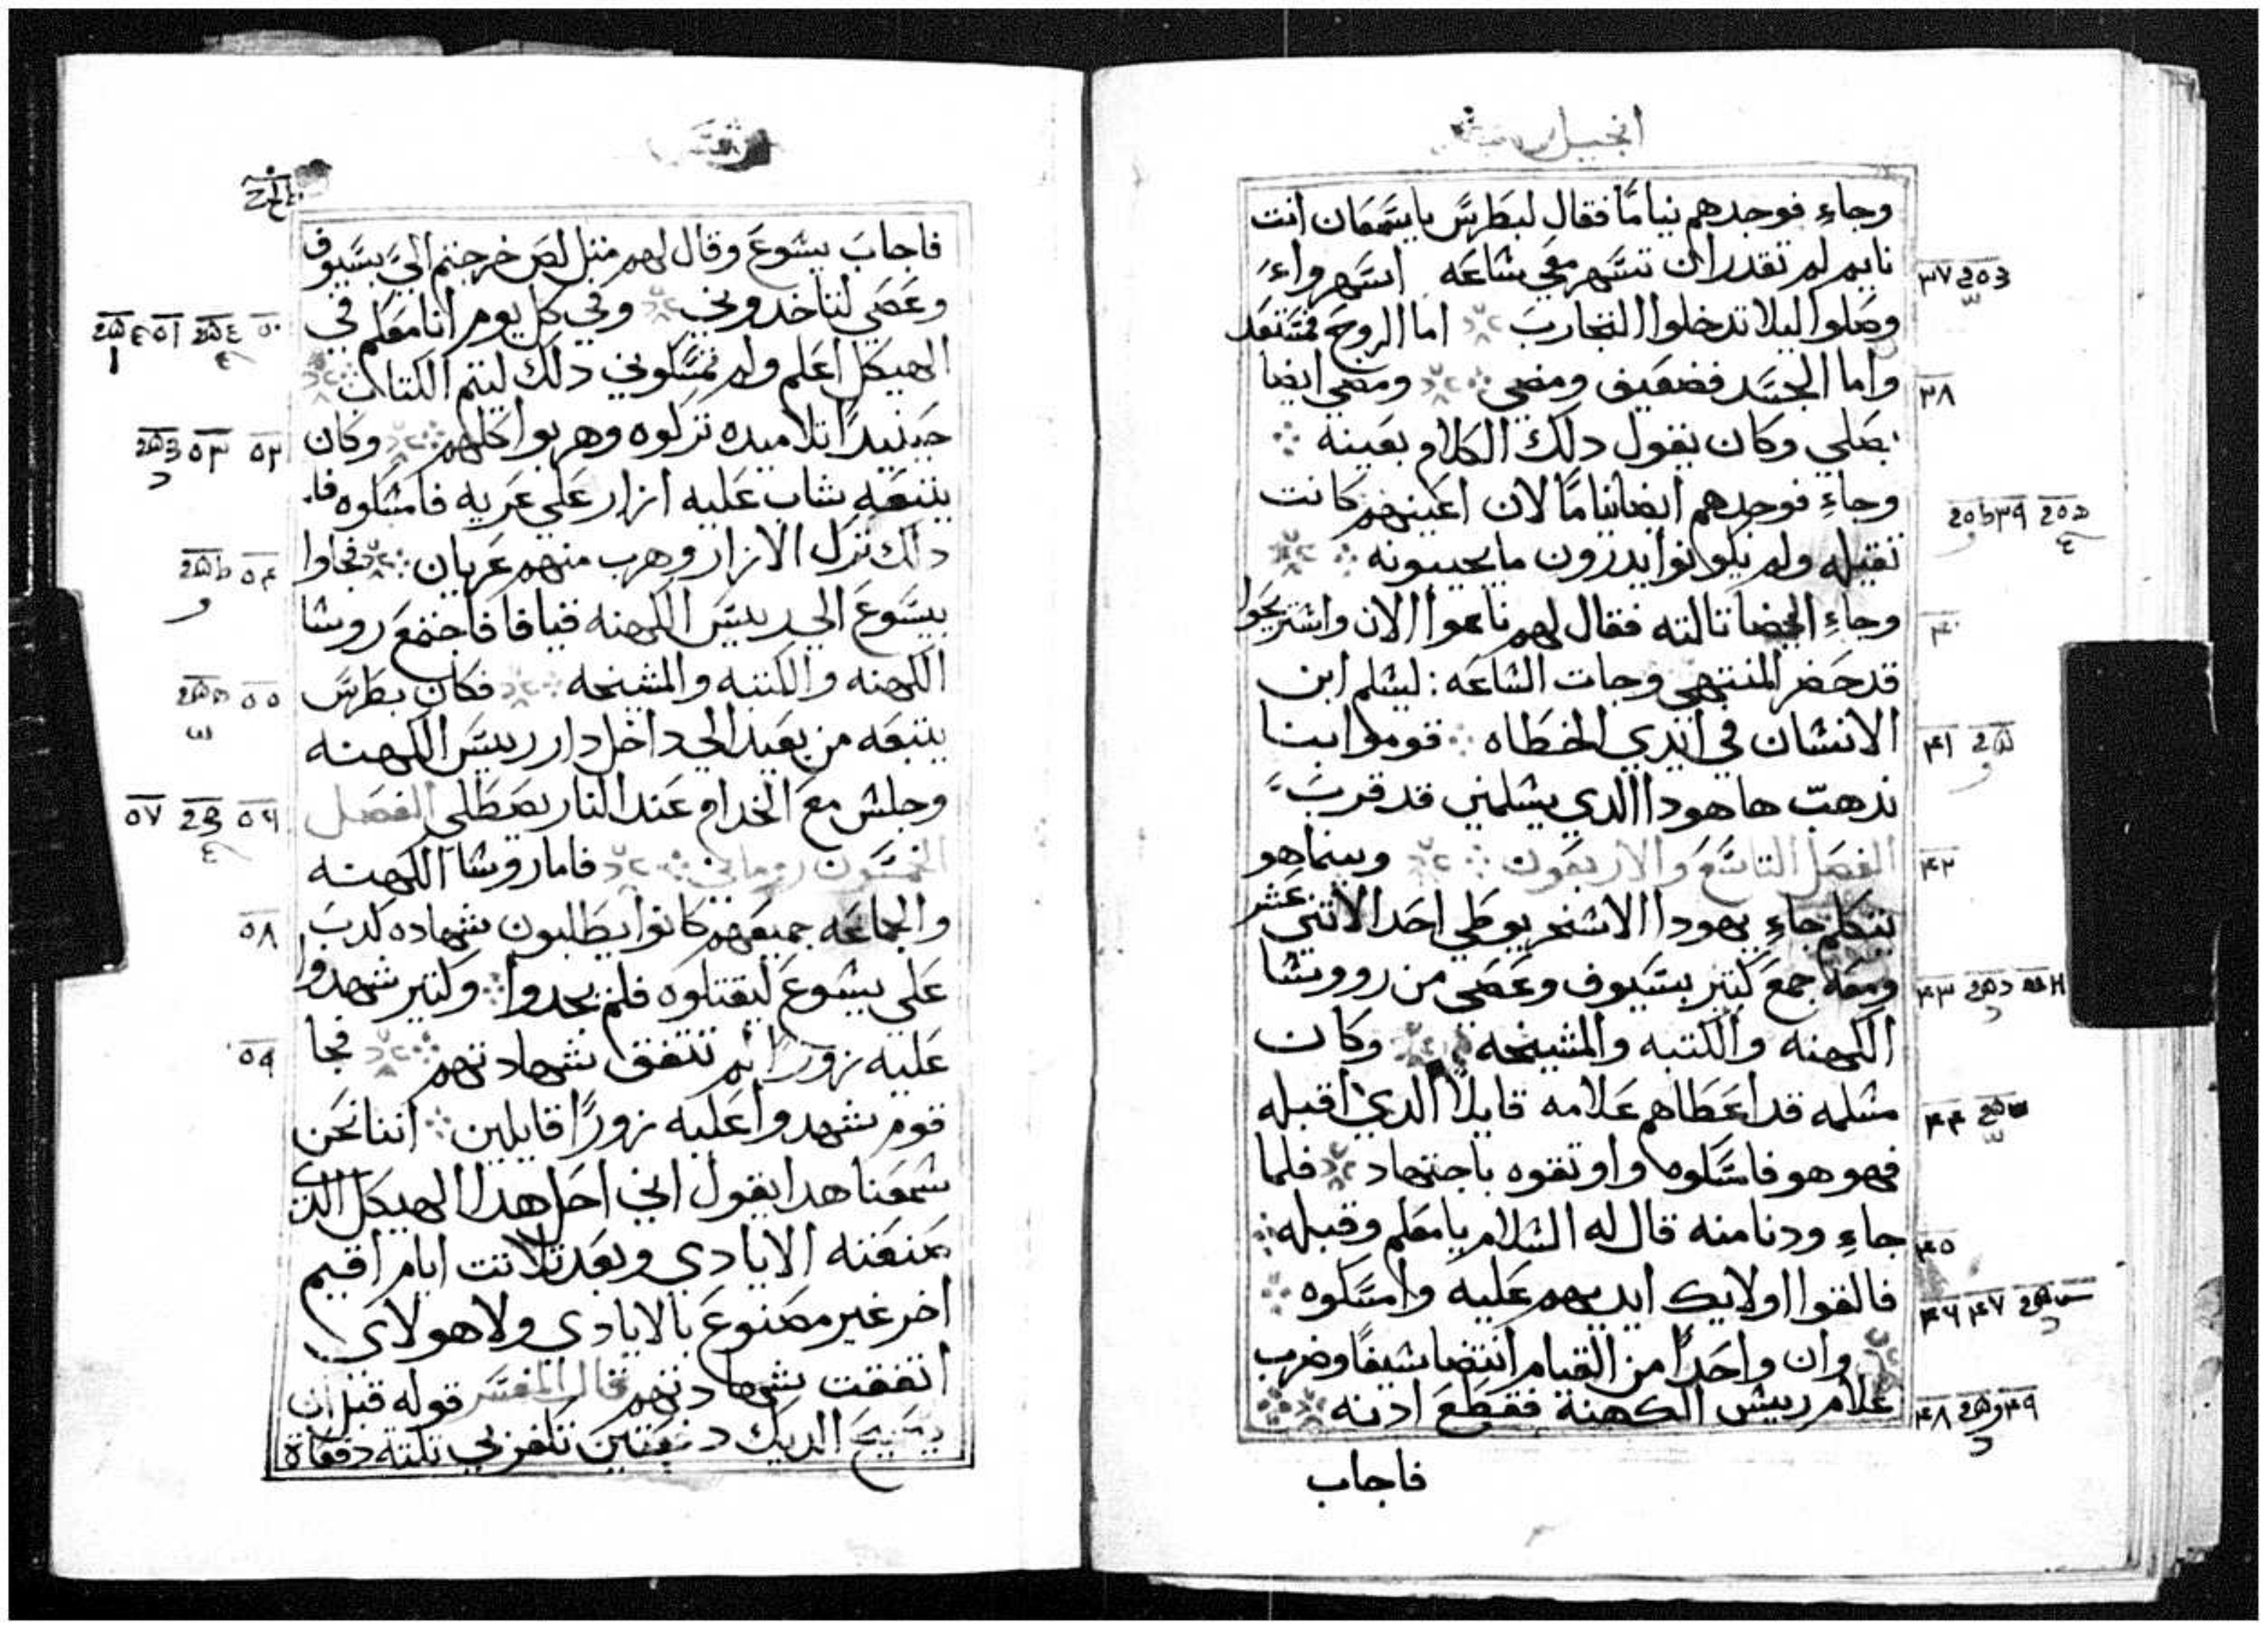 انجيل
وجاءِ فوجدهم نياماً فقال لبطرس ياسمعان انت
نايم لم تقدر ان تسهر معي ساعه اسهرواء
وصلوا ليلا تدخلوا التجارب اما الروح فمستعد
واما الجسد فضعيف ومضي ومضي ايضا
يصلي وكان يقول دلك الكلام بعينه
وجاءِ فوجدهم ايضا نياماً لان اعينهم كانت
تقيله ولم يكونوا يدرون ما يجيبونه
وجاءِ ايضا تالته فقال لهم ناموا الان واستريحوا
قد حضر المنتهي وجات الساعه : ليسلم ابن
الانسان في ايدي الخطاه قوموا بنا
ندهب هاهودا الدي يسلمني قد قرب
الفصل التاسع والاربعون وبينما هو
يتكلم جاءِ يهودا الاسخريوطي احد الاتني عشر
ومعه جمع كتير بسيوف وعصي من رووسا
الكهنه والكتبه والمشيخه وكان
مسلمه قد اعطاهم علامه قايلا الدي اقبله
فهو هو فامسكوه واوتقوه باجتهاد فلما
جاءِ ودنا منه قال له السلام يا معلم وقبله
فالقوا اوليك ايديهم عليه وامسكوه
وان واحداً من القيام انتضا سيفاً وضرب
غلام رييس الكهنة فقطع ادنه
فاجاب
٣٧
٣٨
٣٩
٤٠
٤١
٤٢
٤٣
٤٤
٤٥
٤٦ ٤٧
٤٨ ٤٩
فاجاب يسوع وقال لهم متل لص خرجتم الي بسيوف
وعصي لتاخدوني وفي كل يوم انا معكم في
الهيكل اعلم ولم تمسكوني دلك ليتم الكتاب
حينيداً تلاميده تركوه وهربوا كلهم وكان
يتبعه شاب عليه ازار علي عريه فامسكوه فا
دلك ترك الازار وهرب منهم عريان فجاوا
بيسوع الي رييس الكهنه قيافا فاجتمع روسا
الكهنه والكتبه والمشيخه فكان بطرس
يتبعه من بعيد الي داخل دار رييس الكهنه
وجلس مع الخدام عند النار يصطلي الفصل
الخمسون روماني فاما روسا الكهنه
والجماعه جميعهم كانوا يطلبون شهاده كدب
علي يسوع ليقتلوه فلم يجدوا وكتير شهدوا
عليه زوراً لم تتفق شهادتهم فجا
قوم شهدوا عليه زوراً قايلين اننا نحن
سمعنا هدا يقول اني احل هدا الهيكل الدي
صنعته الايادي وبعد تلاتت ايام اقيم
اخر غير مصنوع بالايادي ولا هولاي
اتفقت شهادتهم قال المفسر قوله قبل ان
يصيح الديك دفعتين تكفر بي تلته دفعاة
٥٠ ٥١
٥٢ ٥٣
٥٤
٥٥
٥٦ ٥٧
٥٨
٥٩